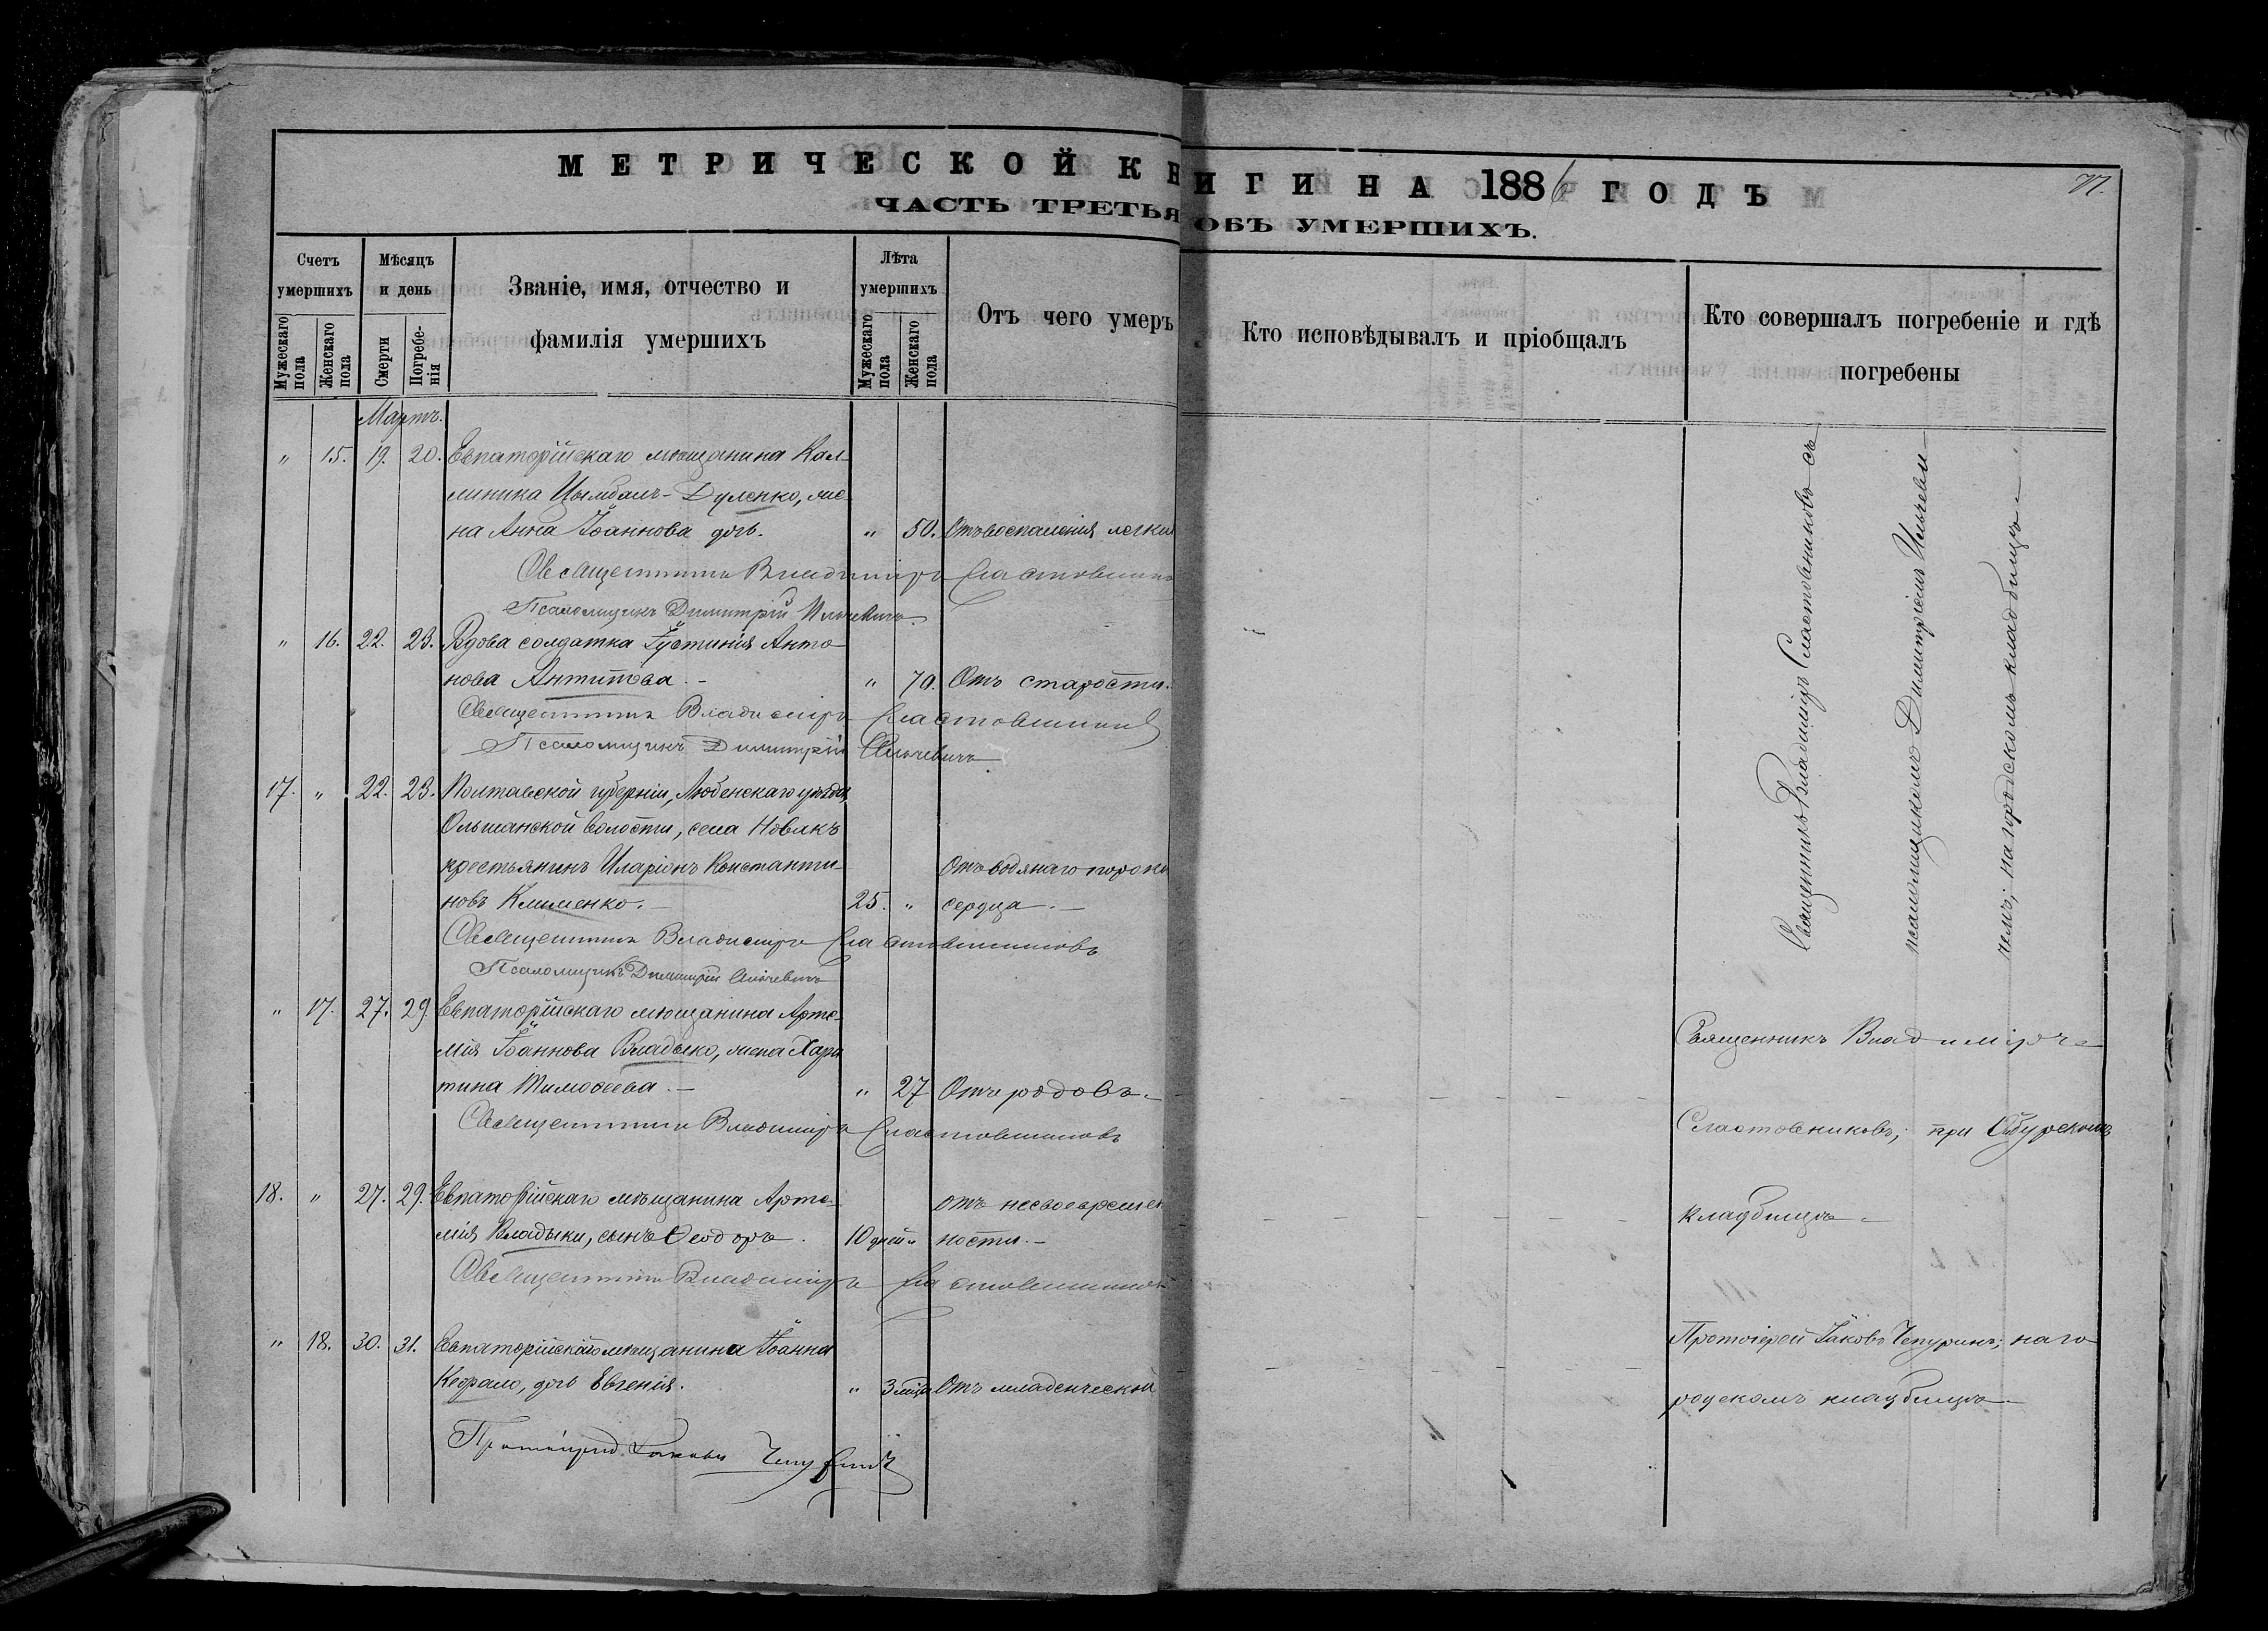 МЕТРИЧЕСКОЙ КНИГИ НА 1886 ГОДЪ
77.
ЧАСТЬ ТРЕТЬЯ ОБЪ УМЕРШИХЪ.
Счетъ умершихъ
Мужескаго пола
Женскаго пола
Мѣсяцъ и день
Смерти
Погребенія
Званіе, имя, отчество и
фамилія умершихъ
Лѣта умершихъ
Мужескаго пола
Женскаго пола
Отъ чего умеръ
Кто исповѣдывалъ и пріобщалъ
Кто совершалъ погребеніе и гдѣ
погребены
Мартъ.
" 15. 19. 20. Евпаторійскаго мѣщанина Кал-
линика Цымбалъ-Дуленко, же-
на Анна Іоаннова дочь. " 50. Отъ воспаленія легких
Священникъ Владиміръ Сластовников
Псаломщикъ Димитрій Ильчевичъ
" 16. 22. 23. Вдова солдатка Іустинія Анто-
нова Антипова. - " 70. Отъ старости.
Священникъ Владиміръ Сластовников
Псаломщикъ Димитрій Ильчевичъ
17. " 22. 23. Полтавской губерніи, Лубенскаго уѣзда,
Ольшанской волости, села Новакъ
крестьянинъ Иларіонъ Константи-
Отъ водянаго порока
новъ Клименко. - 25. " сердца. -
Священникъ Владиміръ Сластовниковъ
Псаломщикъ Димитрій Ильчевичъ
Священникъ Владиміръ Сластовниковъ съ
псаломщикомъ Димитріемъ Ильчеви-
чемъ; на городскомъ кладбищѣ.
" 17. 27. 29. Евпаторійскаго мѣщанина Арте-
мія Іоаннова Владыко, жена Хари-
тина Тимоѳеева. - " 27 Отъ родовъ. -
Священникъ Владиміръ Сластовниковъ
Священникъ Владиміръ
Сластовниковъ; при
кладбищѣ.
18. " 27. 29. Евпаторійскаго мѣщанина Арте-
отъ несвоевремен
мія Владыки, сынъ Ѳеодоръ. 10 дней " ности. -
Священникъ Владиміръ Сластовников
" 18. 30. 31. Евпаторійскаго мѣщанина Іоанна
дочь Евгенія. " 3 мѣс. Отъ младенческой
Протоіерей Іаковъ Чепуринъ
Протоіерей Іаковъ Чепуринъ; на го-
родскомъ кладбищѣ.